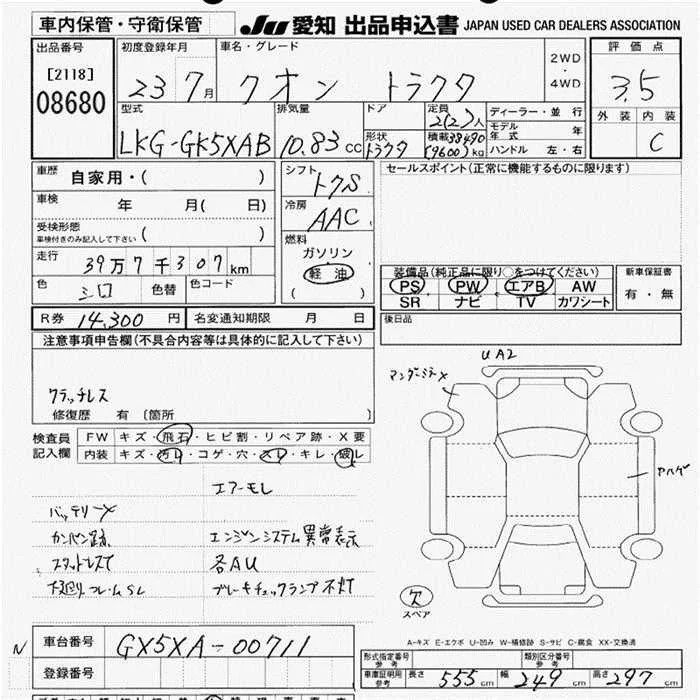 車内保管・守衛保管
JU 愛知 出品申込書 JAPAN USED CAR DEALERS ASSOCIATION
出品番号
[2118]
08680
初度登録年月
23 7月
車名・グレード
クオン トラクタ
2WD
・
4WD
評価点
3.5
外装 内装
C
型式
LKG-GK5XAB
排気量
10.83 cc
ドア
形状
トラクタ
定員
2(2)人
積載 38490
(9600)kg
ディーラー・並行
モデル年式 年
ハンドル 左・右
車歴 自家用・( )
車検 年 月( 日)
受検形態
車検付きのみ記入して下さい ( )
走行 39万7千307km
色 シロ 色替 色コード
シフト
冷房
AAC
燃料
ガソリン
軽油
( )
セールスポイント(正常に機能するものに限ります)
装備品(純正品に限り○をつけてください)
PS PW エアB AW
SR ナビ TV カワシート
新車保証書
有・無
後日品
R券 14,300円 名変通知期限 月 日
注意事項申告欄(不具合内容等は具体的に記入して下さい)
クラッチレス
修復歴 有 〔箇所 〕
検査員
記入欄
FW キズ・飛石・ヒビ割・リペア跡・X要
内装 キズ・汚レ・コゲ・穴・スレ・キレ・破レ
エアーモレ
バッテリーX
カンバン跡 エンジンシステム異常表示
スタッドレスT 各AU
下廻りフレームSL ブレーキチェックランプ不灯
UA2
ヤハゲ
欠
スペア
A-キズ E-エクボ U-凹み W-補修跡 S-サビ C-腐食 XX-交換済
N
車台番号 GX5XA-00711
登録番号
形式指定番号
参考
類別区分番号
参考
車庫証明用
参考
長さ 555cm 幅 249cm 高さ 297cm